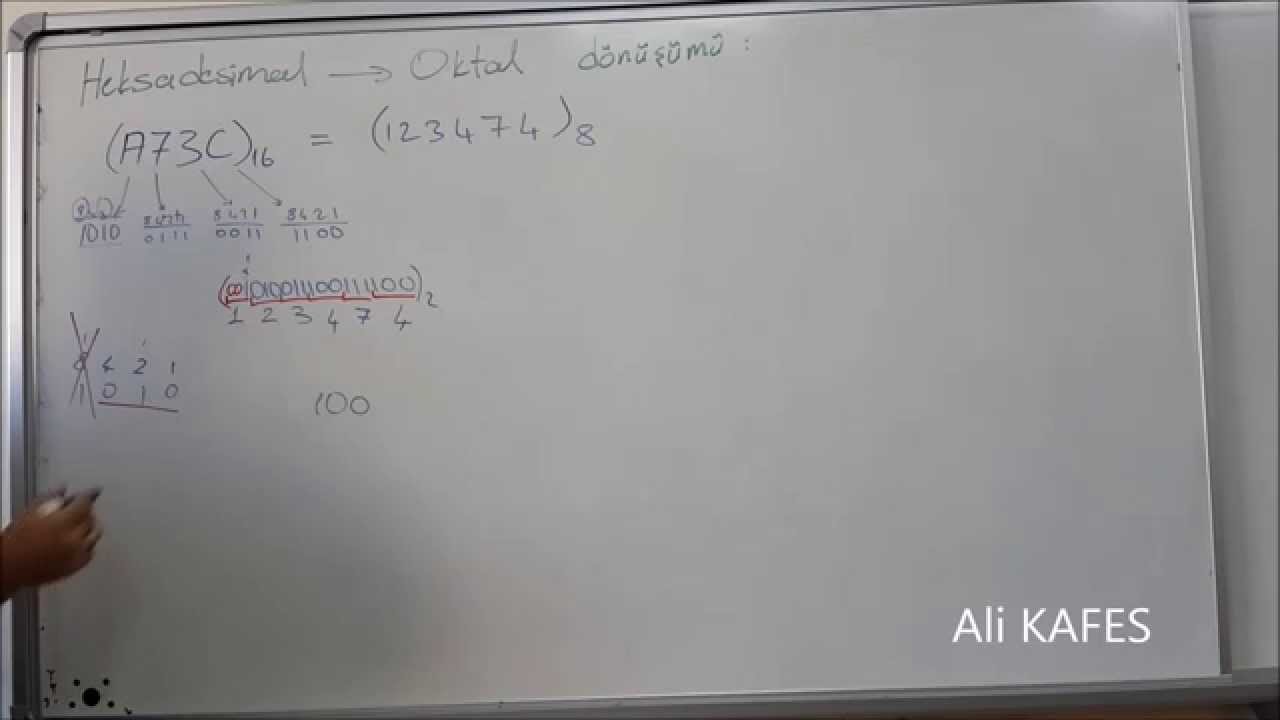 Heksadesimal → Oktal dönüşümü :
(A73C)16 = (123474)8
8421 8421 8421
1010 0111 0011 1100
(001010011100111100)2
1 2 3 4 7 4
8 4 2 1
1 0 1 0
100
Ali KAFES